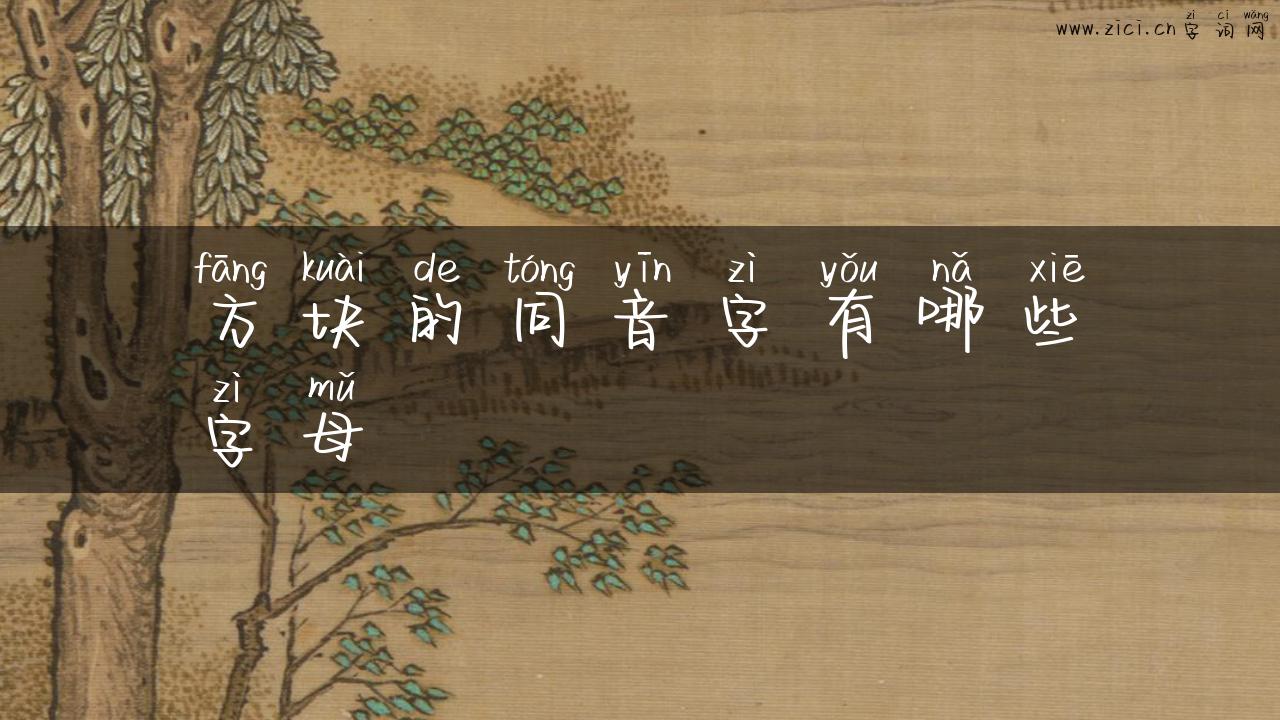 zì cí wǎng
www.zici.cn 字词网
fāng kuài de tóng yīn zì yǒu nǎ xiē
方块的同音字有哪些
zì mǔ
字母